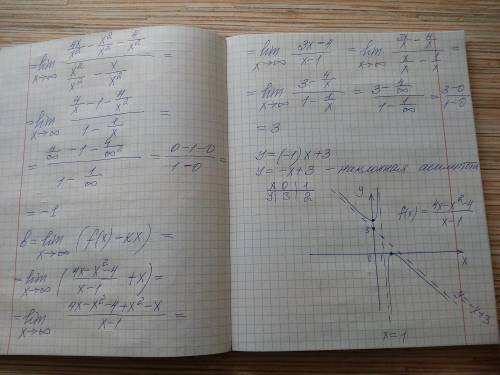 = lim x→∞ (4x/x² - x²/x² - 4/x²)/(x²/x² - x/x²) =
= lim x→∞ (4/x - 1 - 4/x²)/(1 - 1/x) =
= (4/∞ - 1 - 4/∞²)/(1 - 1/∞) = (0-1-0)/(1-0) =
= -1
b = lim x→∞ (f(x) - kx) =
= lim x→∞ ((4x-x²-4)/(x-1) + x) =
= lim x→∞ (4x-x²-4+x²-x)/(x-1) =
= lim x→∞ (3x-4)/(x-1) = lim x→∞ (3x/x - 4/x)/(x/x - 1/x) =
= lim x→∞ (3 - 4/x)/(1 - 1/x) = (3 - 4/∞)/(1 - 1/∞) = (3-0)/(1-0)
= 3
y = (-1)x+3
y = -x+3 - наклонная асимптота
x 0 1
y 3 2
y
f(x) = (4x-x²-4)/(x-1)
3
0
1
x
y=-x+3
x=1